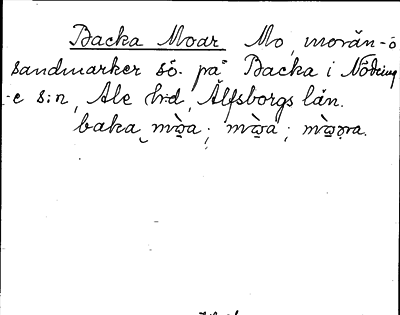 Backa Moar Mo, morän- o
sandmarker sö. på Backa i Nödinge
-e s:n, Ale h:d, Älfsborgs län.
baka mòa; mòa; mòra.